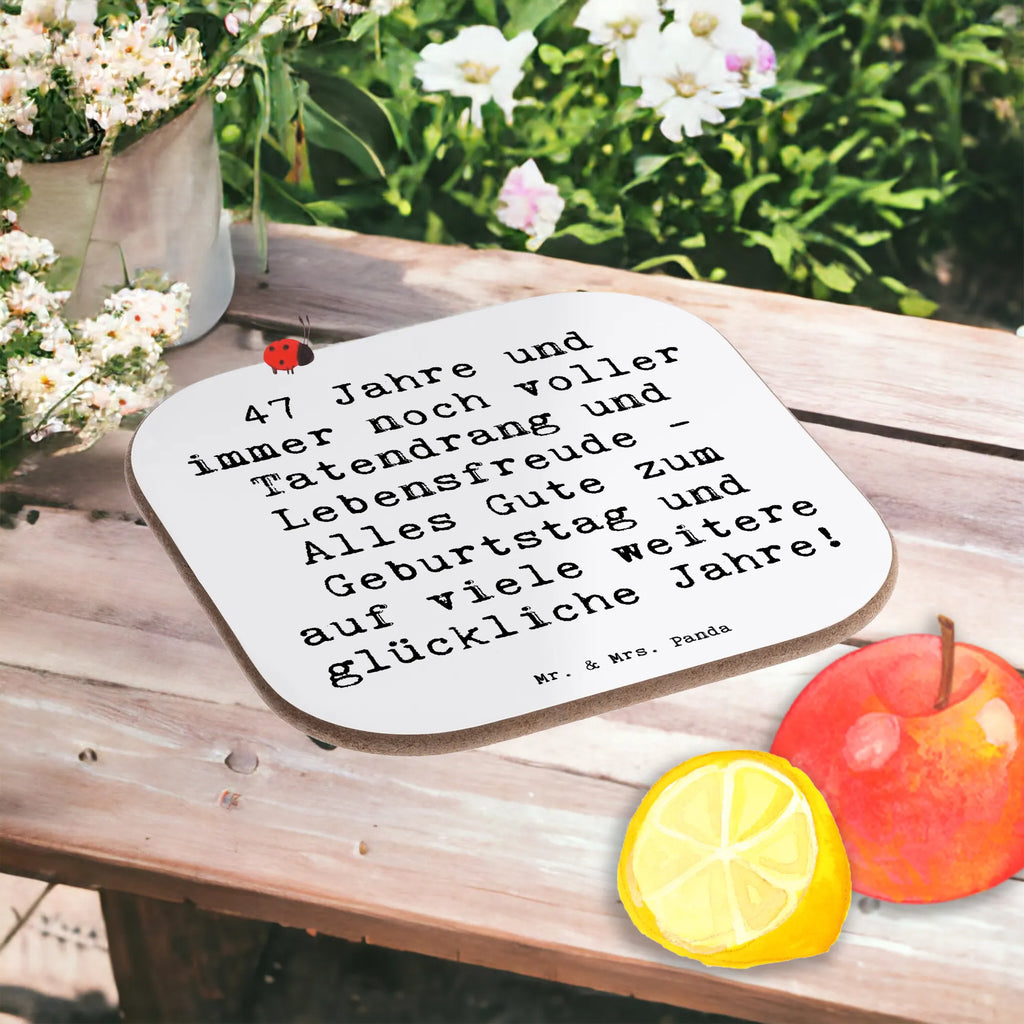 47 Jahre und
immer noch voller
Tatendrang und
Lebensfreude -
Alles Gute zum
Geburtstag und
auf viele weitere
glückliche Jahre!
Mr. & Mrs. Panda